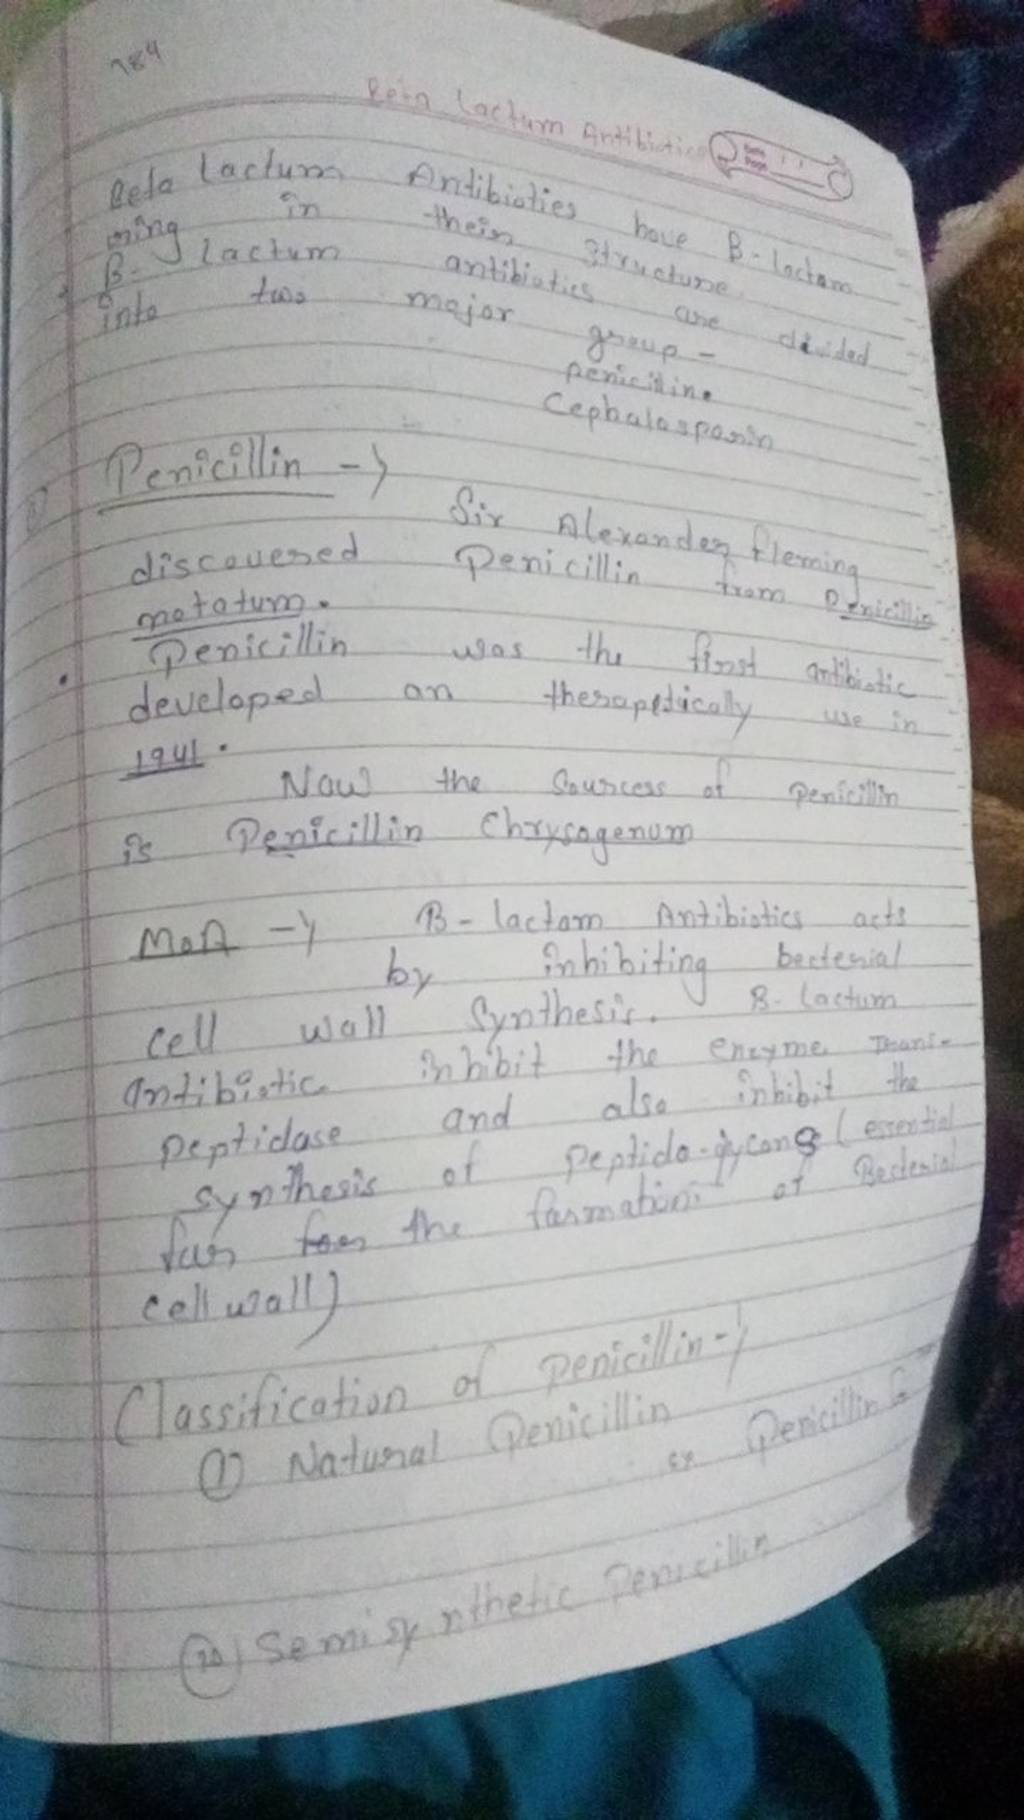 184
Beta Lactum Antibiotics
Date
Page
Beta Lactum Antibiotics have B-lactam
ring in their structure.
B-Lactum antibiotics are divided
into two major group -
peniciline
Cephalosporin
Penicillin ->
Sir Alexander Fleming
discovered Penicillin from Penicillin
notatum.
Penicillin was the first antibiotic
developed an therapetically use in
1941.
Now the Sourcess of penicillin
is Penicillin Chrysogenum
MOA -> B-lactam Antibiotics acts
by inhibiting becterial
cell wall synthesis. B-Lactum
antibiotic inhibit the enzyme Trans-
peptidase and also inhibit the
synthesis of peptido-glycons (essential
for the formation of Becterial
cell wall)
Classification of penicillin ->
① Natural Penicillin
ex Penicillin G
Semisynthetic Penicillin